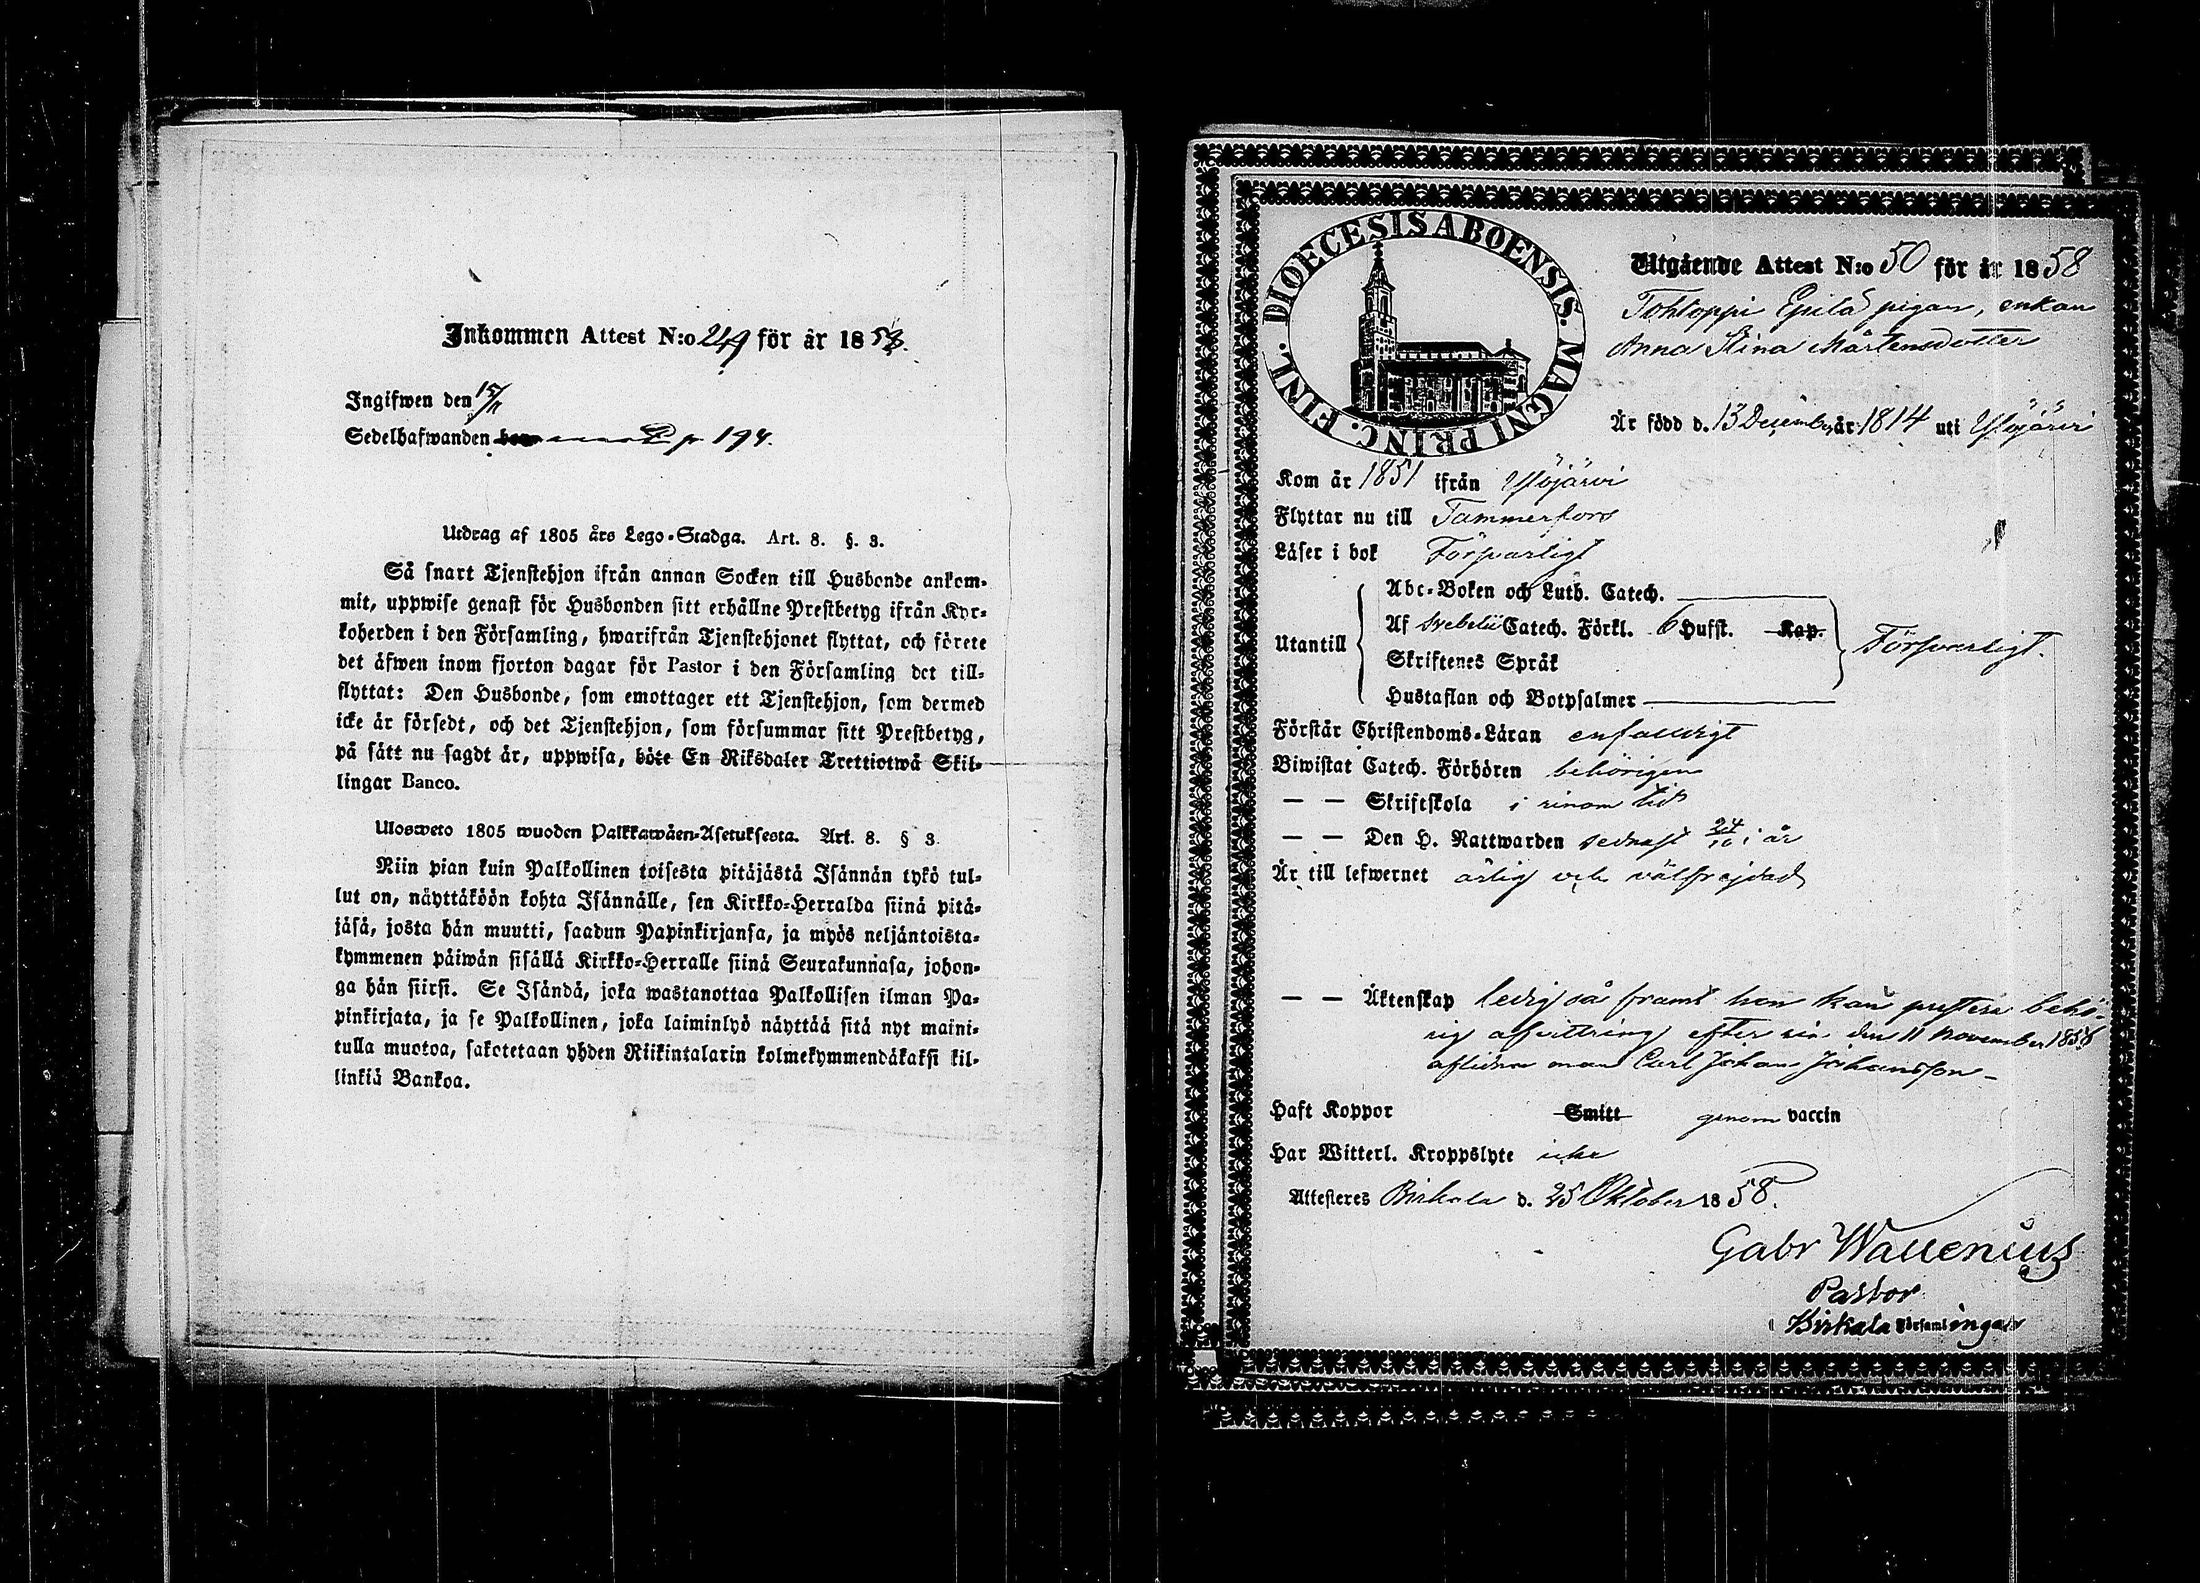 Inkommen Attest N:o 249 för år 1858.
Ingifwen den 15/11
Sedelhafwanden p 194.
Utdrag af 1805 års Lego-Stadga. Art. 8. §. 3.
Så snart Tjenstehjon ifrån annan Socken till Husbonde ankom-
mit, uppwise genast för Husbonden sitt erhållne Prestbetyg ifrån Kyr-
koherden i den Församling, hwarifrån Tjenstehjonet flyttat, och förete
det äfwen inom fjorton dagar för Pastor i den Församling det till-
flyttat: Den Husbonde, som emottager ett Tjenstehjon, som dermed
icke är försedt, och det Tjenstehjon, som försummar sitt Prestbetyg,
på sätt nu sagdt är, uppwisa, böte En Riksdaler Trettiotwå Skil-
lingar Banco.
Ulosweto 1805 wuoden Palkkawäen-Asetuksesta. Art. 8. § 3.
Niin pian kuin Palkollinen toisesta pitäjästä Isännän tykö tul-
lut on, näyttäköön kohta Isännälle, sen Kirkko-Herralda siinä pitä-
jäsä, josta hän muutti, saadun Papinkirjansa, ja myös neljäntoista-
kymmenen päiwän sisällä Kirkko-Herralle siinä Seurakunnasa, johon-
ga hän siirsi. Se Isändä, joka wastanottaa Palkollisen ilman Pa-
pinkirjata, ja se Palkollinen, joka laiminlyö näyttää sitä nyt maini-
tulla muotoa, sakotetaan yhden Riikintalarin kolmekymmendäkaksi kil-
linkiä Bankoa.
DIOECESIS ABOENSIS. MAGNI PRINC. FINL.
Utgående Attest N:o 50 för år 1858
Tohloppi Epilä pigan, enkan
Anna Stina Mårtensdotter
Är född d. 13 December år 1814 uti Ylöjärvi
Kom år 1851 ifrån Ylöjärvi
Flyttar nu till Tammerfors
Läser i bok Försvarligt
Abc-Boken och Luth. Catech.
Utantill Af Svebelii Catech. Förkl. 6 Hufst. Kap. Försvarligt.
Skriftenes Språk
Hustaflan och Botpsalmer
Förstår Christendoms-Läran enfaldigt
Biwistat Catech. Förhören behörigen
— — Skriftskola i sinom tid
— — Den H. Nattwarden sednast 24/10 i år
Är till lefwernet ärlig och välfrejdad
— — Äktenskap ledig så framt hon kan prestera behö-
rig afvittring efter sin den 11 November 1856
aflidna man Carl Johan Johansson
Haft Koppor Smitt genom vaccin
Har Witterl. Kroppslyte icke
Attesteres Birkala d. 25 Oktober 1858.
Gabr Wallenius
Pastor
i Birkala Församlingar